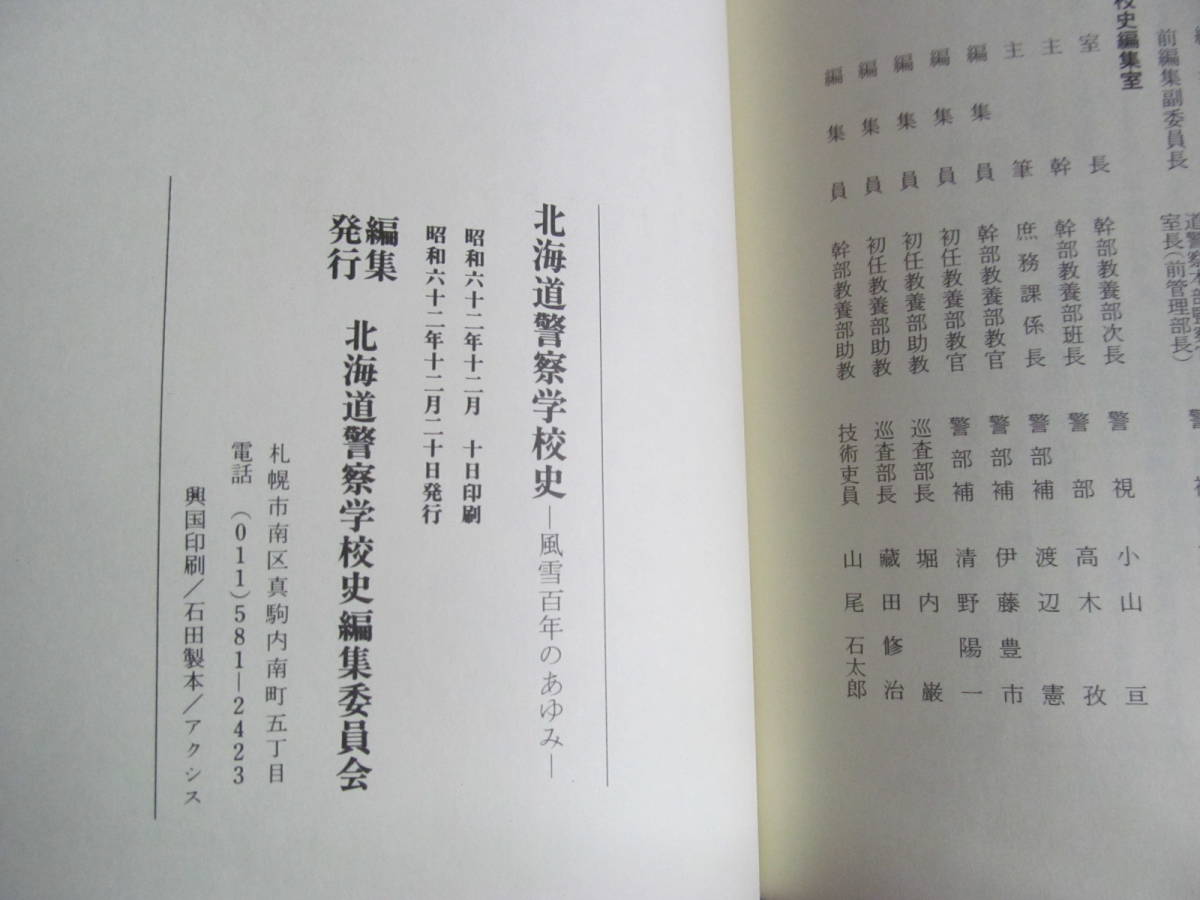 前編集副委員長　室長(前管理部長)
校史編集室
室長　幹部教養部次長　警視　小山　亘
主幹　幹部教養部班長　警部　高木　孜
主筆　庶務課係長　警部補　渡辺　憲
編集員　幹部教養部教官　警部補　伊藤豊市
編集員　初任教養部教官　警部補　清野陽一
編集員　初任教養部助教　巡査部長　堀内　巌
編集員　初任教養部助教　巡査部長　藏田修治
編集員　幹部教養部助教　技術吏員　山尾石太郎
北海道警察学校史―風雪百年のあゆみ―
昭和六十二年十二月　十日印刷
昭和六十二年十二月二十日発行
編集
発行　北海道警察学校史編集委員会
札幌市南区真駒内南町五丁目
電話　(011)581―2423
興国印刷/石田製本/アクシス